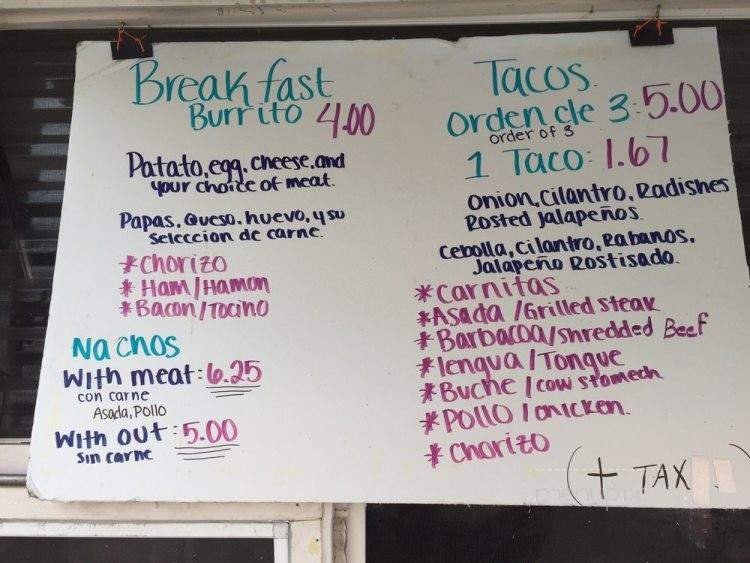 Breakfast
Burrito 4.00
Patato, egg, cheese, and
your choice of meat.
Papas, Queso, huevo, y su
Seleccion de carne.
*Chorizo
*Ham/Hamon
*Bacon/Tocino
Nachos
With meat: 6.25
con carne
Asada, Pollo
With out: 5.00
Sin carne
Tacos
Orden de 3: 5.00
order of 3
1 Taco: 1.67
Onion, Cilantro, Radishes
Rosted Jalapeños.
Cebolla, Cilantro, Rabanos,
Jalapeño Rostisado.
*Carnitas
*Asada /Grilled steak
*Barbacoa/shredded Beef
*lengua/Tongue
*Buche/cow stomech
*Pollo/chicken.
*Chorizo
(+ TAX)